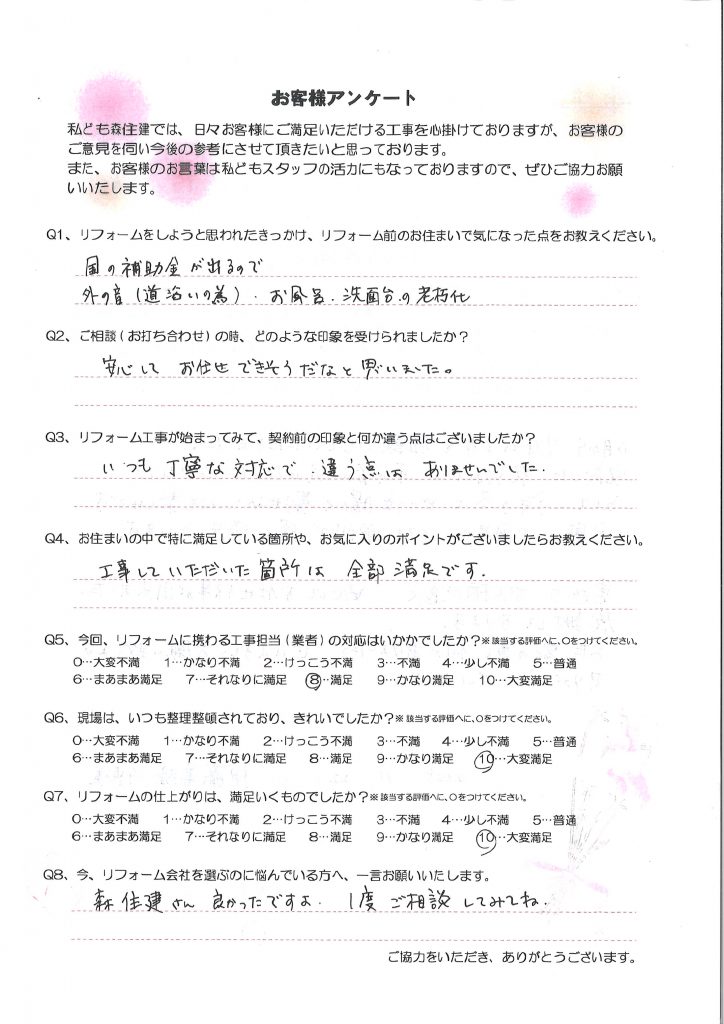 お客様アンケート
私ども森住建では、日々お客様にご満足いただける工事を心掛けておりますが、お客様の
ご意見を伺い今後の参考にさせて頂きたいと思っております。
また、お客様のお言葉は私どもスタッフの活力にもなっておりますので、ぜひご協力お願
いいたします。
Q1、リフォームをしようと思われたきっかけ、リフォーム前のお住まいで気になった点をお教えください。
国の補助金が出るので
外の音(道沿いの為)．お風呂．洗面台の老朽化
Q2、ご相談(お打ち合わせ)の時、どのような印象を受けられましたか？
安心して お任せできそうだなと思いました。
Q3、リフォーム工事が始まってみて、契約前の印象と何か違う点はございましたか？
いつも丁寧な対応で．違う点は ありませんでした．
Q4、お住まいの中で特に満足している箇所や、お気に入りのポイントがございましたらお教えください。
工事していただいた箇所は 全部満足です．
Q5、今回、リフォームに携わる工事担当(業者)の対応はいかかでしたか？※該当する評価へに、○をつけてください。
0…大変不満 1…かなり不満 2…けっこう不満 3…不満 4…少し不満 5…普通
6…まあまあ満足 7…それなりに満足 8…満足 9…かなり満足 10…大変満足
Q6、現場は、いつも整理整頓されており、きれいでしたか？※該当する評価へに、○をつけてください。
0…大変不満 1…かなり不満 2…けっこう不満 3…不満 4…少し不満 5…普通
6…まあまあ満足 7…それなりに満足 8…満足 9…かなり満足 10…大変満足
Q7、リフォームの仕上がりは、満足いくものでしたか？※該当する評価へに、○をつけてください。
0…大変不満 1…かなり不満 2…けっこう不満 3…不満 4…少し不満 5…普通
6…まあまあ満足 7…それなりに満足 8…満足 9…かなり満足 10…大変満足
Q8、今、リフォーム会社を選ぶのに悩んでいる方へ、一言お願いいたします。
森住建さん 良かったですよ．1度ご相談してみてね．
ご協力をいただき、ありがとうございます。